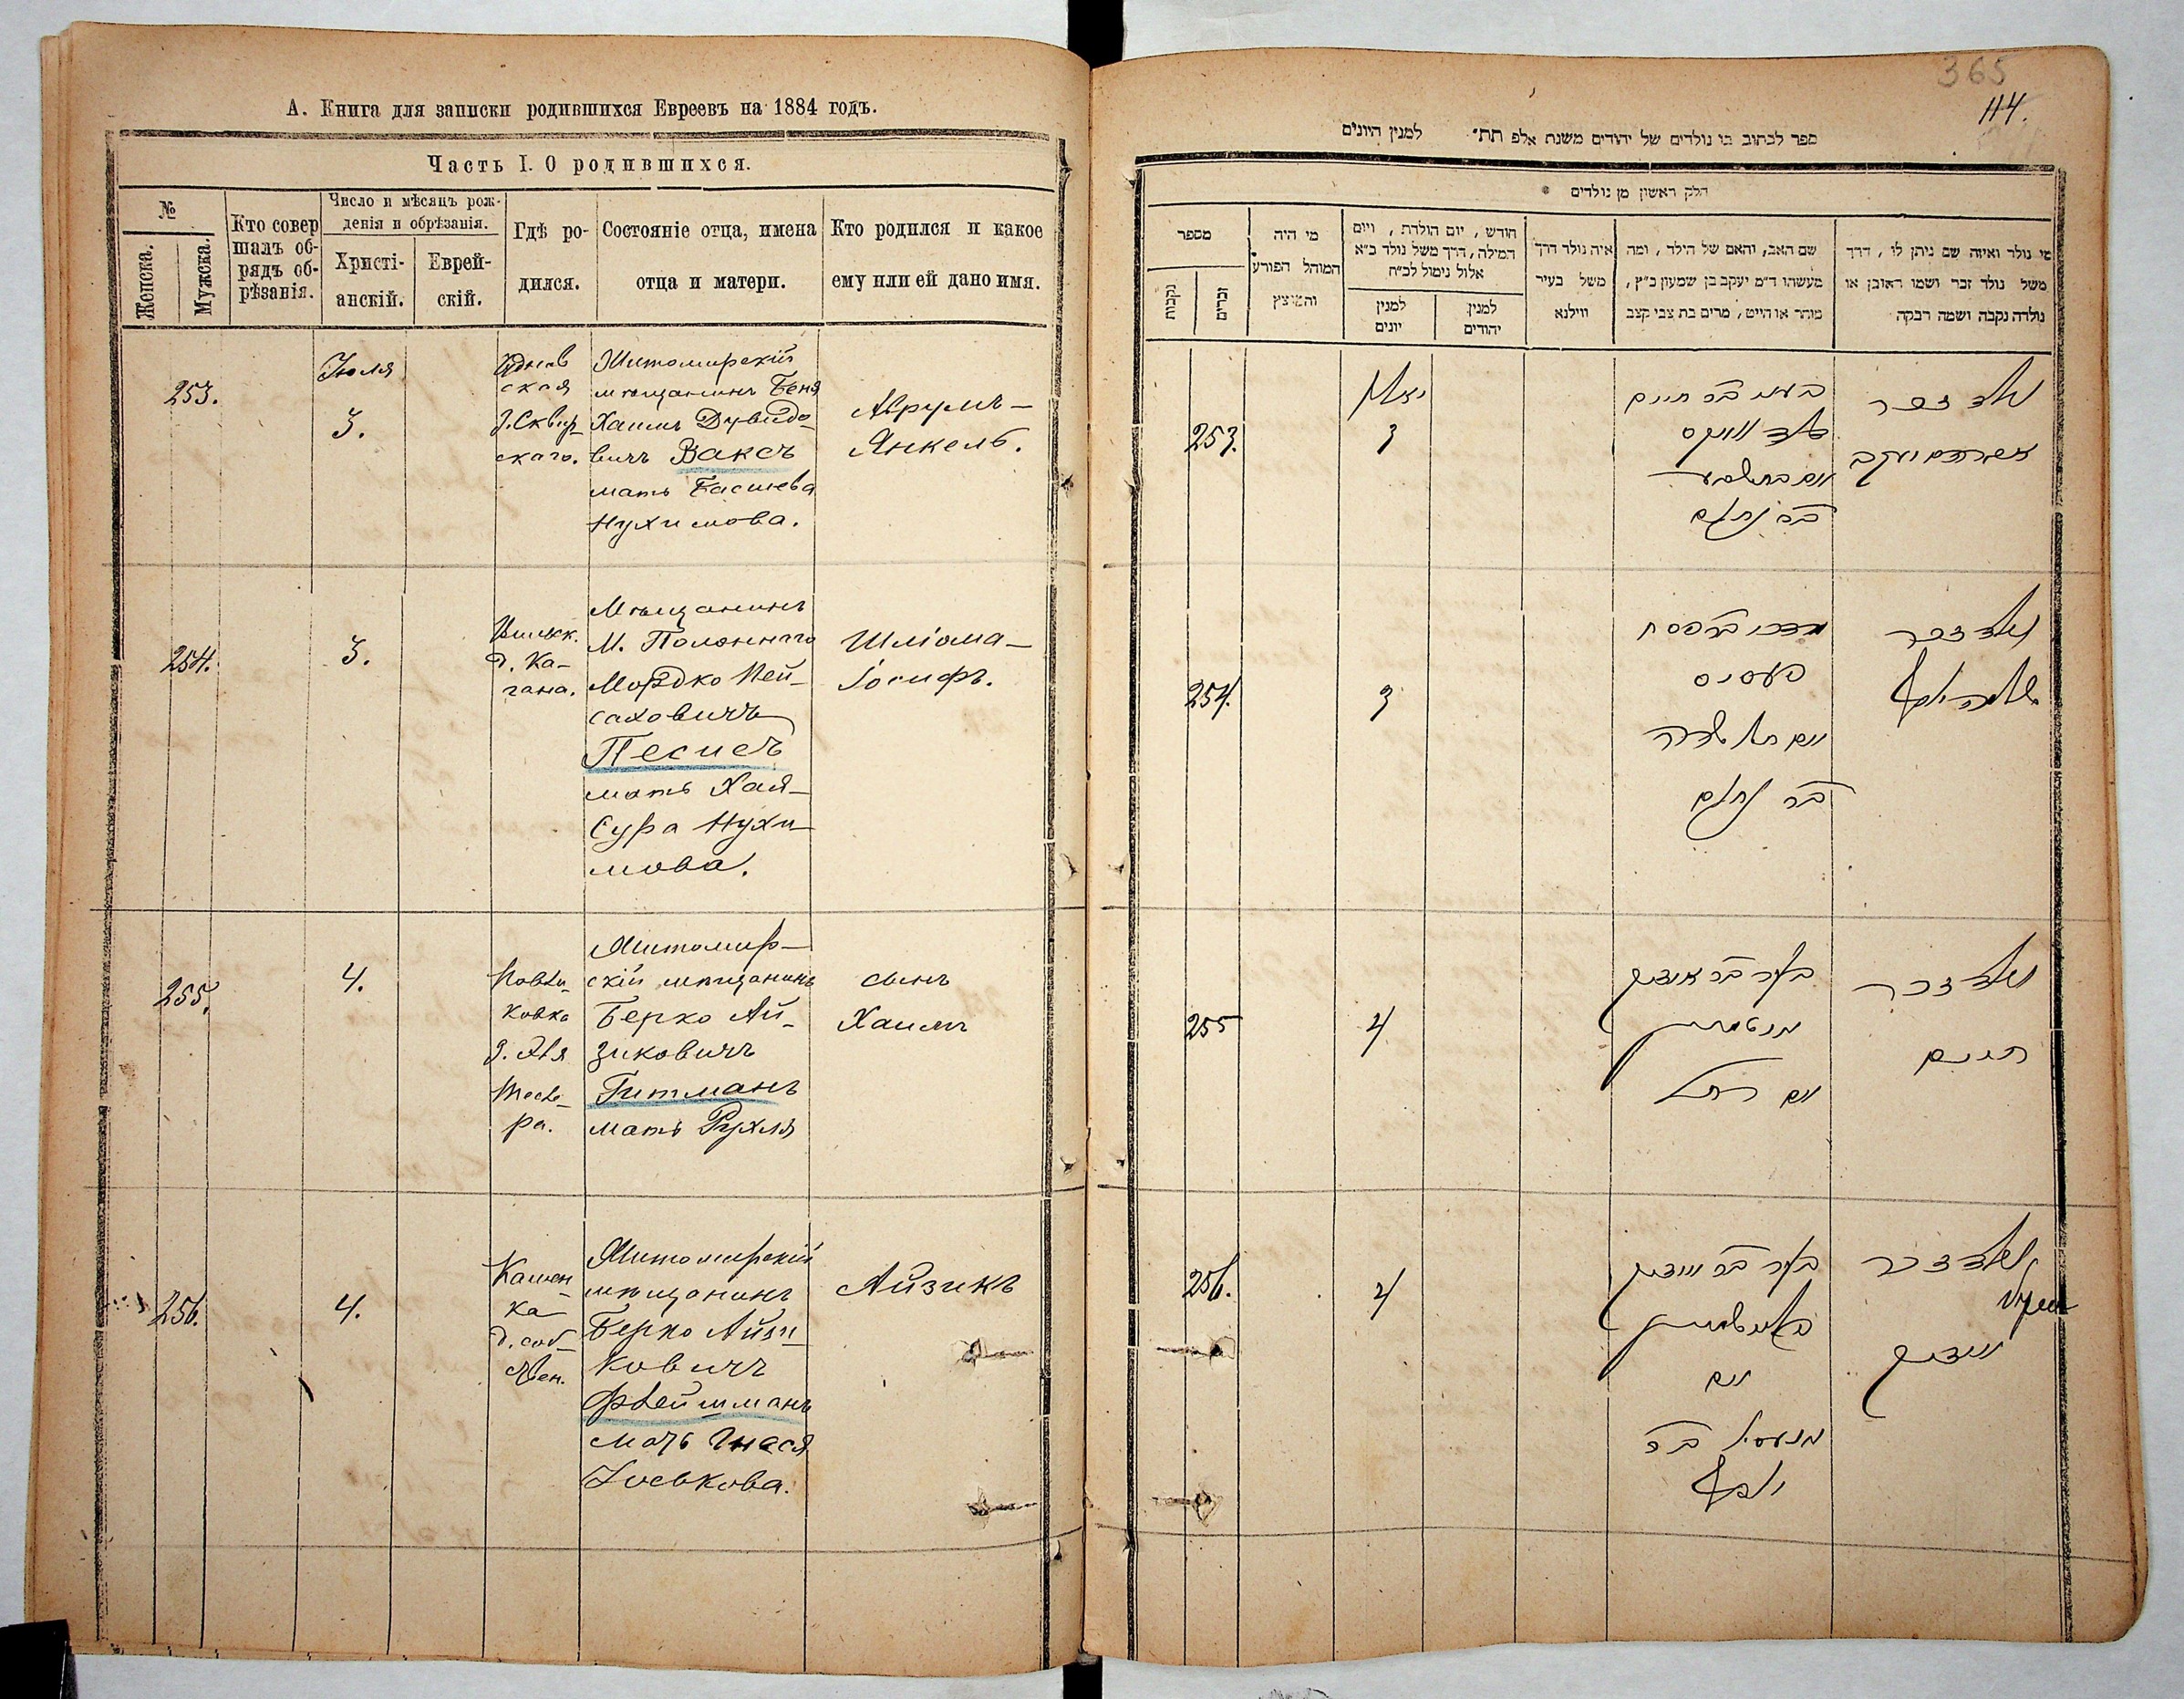 А. Книга для записки родившихся Евреевъ на 1884 годъ.
Часть I. О родившихся.
№
Женска.
Мужска.
Кто совер
шалъ об-
рядъ об-
рѣзанія.
Число и мѣсяцъ рож-
денія и обрѣзанія.
Христі-
анскій.
Еврей-
скій.
Гдѣ ро-
дился.
Состояніе отца, имена
отца и матери.
Кто родился и какое
ему или ей дано имя.
253.
Іюля
3.
ская
з. Сквир-
скаго.
Житомирскій
мѣщанинъ Беня
Хаимъ Дувидо-
вичъ Ваксъ
мать Басшева
Нухимова.
Аврумъ-
Янкель.
254.
3.
д. Ка-
гана.
Мѣщанинъ
М. Полоннаго
Мордко Пей-
саховичъ
Песисъ
мать Хая-
Сура Нухи-
мова.
Шліома-
Іосифъ.
255.
4.
ковка
Житомир-
скій мѣщанинъ
Берко Ай-
зиковичъ
Гитманъ
мать Рухля
сынъ
Хаимъ
256.
4.
Камен-
ка
д. соб-
ствен.
Житомирскій
мѣщанинъ
Берко Айзи-
ковичъ
Флейшманъ
мать Гнеся
Іоськова.
Айзикъ
365
114.
ספר לכתוב בו נולדים של יהודים משנת אלפ תת״ למנין היונים
חלק ראשון מן נולדים
מספר
נקבות
זכרים
מי היה
המוהל הפורע
והמוצץ
חודש, יום הולדת, ויום
המילה, דרך משל נולד כ״א
אלול נימול לכ״ח
למנין
יונים
למנין
יהודים
איה נולד דרך
משל בעיר
ווילנא
שם האב, והאם של הילד, ומה
מעשהו ד״מ יעקב בן שמעון כ״ץ,
סוחר או חייט, מרים בת צבי קצב
מי נולד ואיזה שם ניתן לו, דרך
משל נולד זכר ושמו ראובן או
נולדה נקבה ושמה רבקה
253.
יולי
3
בעני בר חיים
דוד וואקס
אם בתשבע
בר נחום
נולד זכר
אברהם יעקב
254.
3
מרדכי בר פסח
פעסיס
אם חי׳ שרה
בר נחום
נולד זכר
שלמה יוסף
255
4
בער בר אייזיק
גיטמאן
אם רחל
נולד זכר
חיים
256.
4
בער בר אייזיק
פליישמאן
אם
גנעסי׳ בר
יוסף
נולד זכר
אייזיק